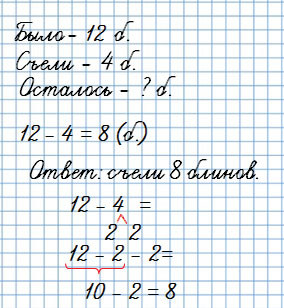 Было - 12 б.
Съели - 4 б.
Осталось - ? б.
12 - 4 = 8 (б.)
Ответ: съели 8 блинов.
12 - 4 =
2 2
12 - 2 - 2=
10 - 2 = 8